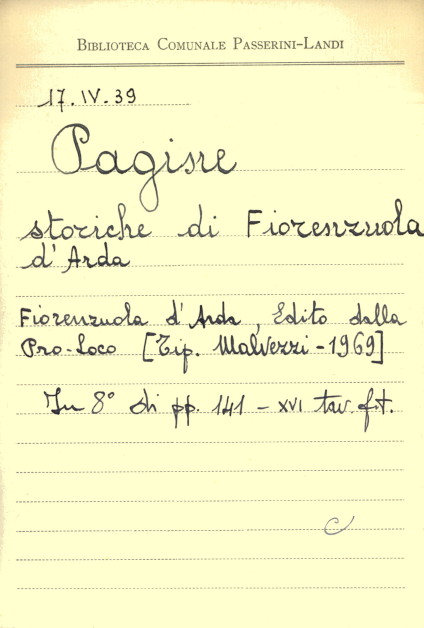 BIBLIOTECA COMUNALE PASSERINI-LANDI
17.IV.39
Pagine
storiche di Fiorenzuola
d'Arda
Fiorenzuola d'Arda, Edito dalla
Pro-Loco [Tip. Malvezzi - 1969]
In 8° di pp. 141 - XVI tav. f.t.
C